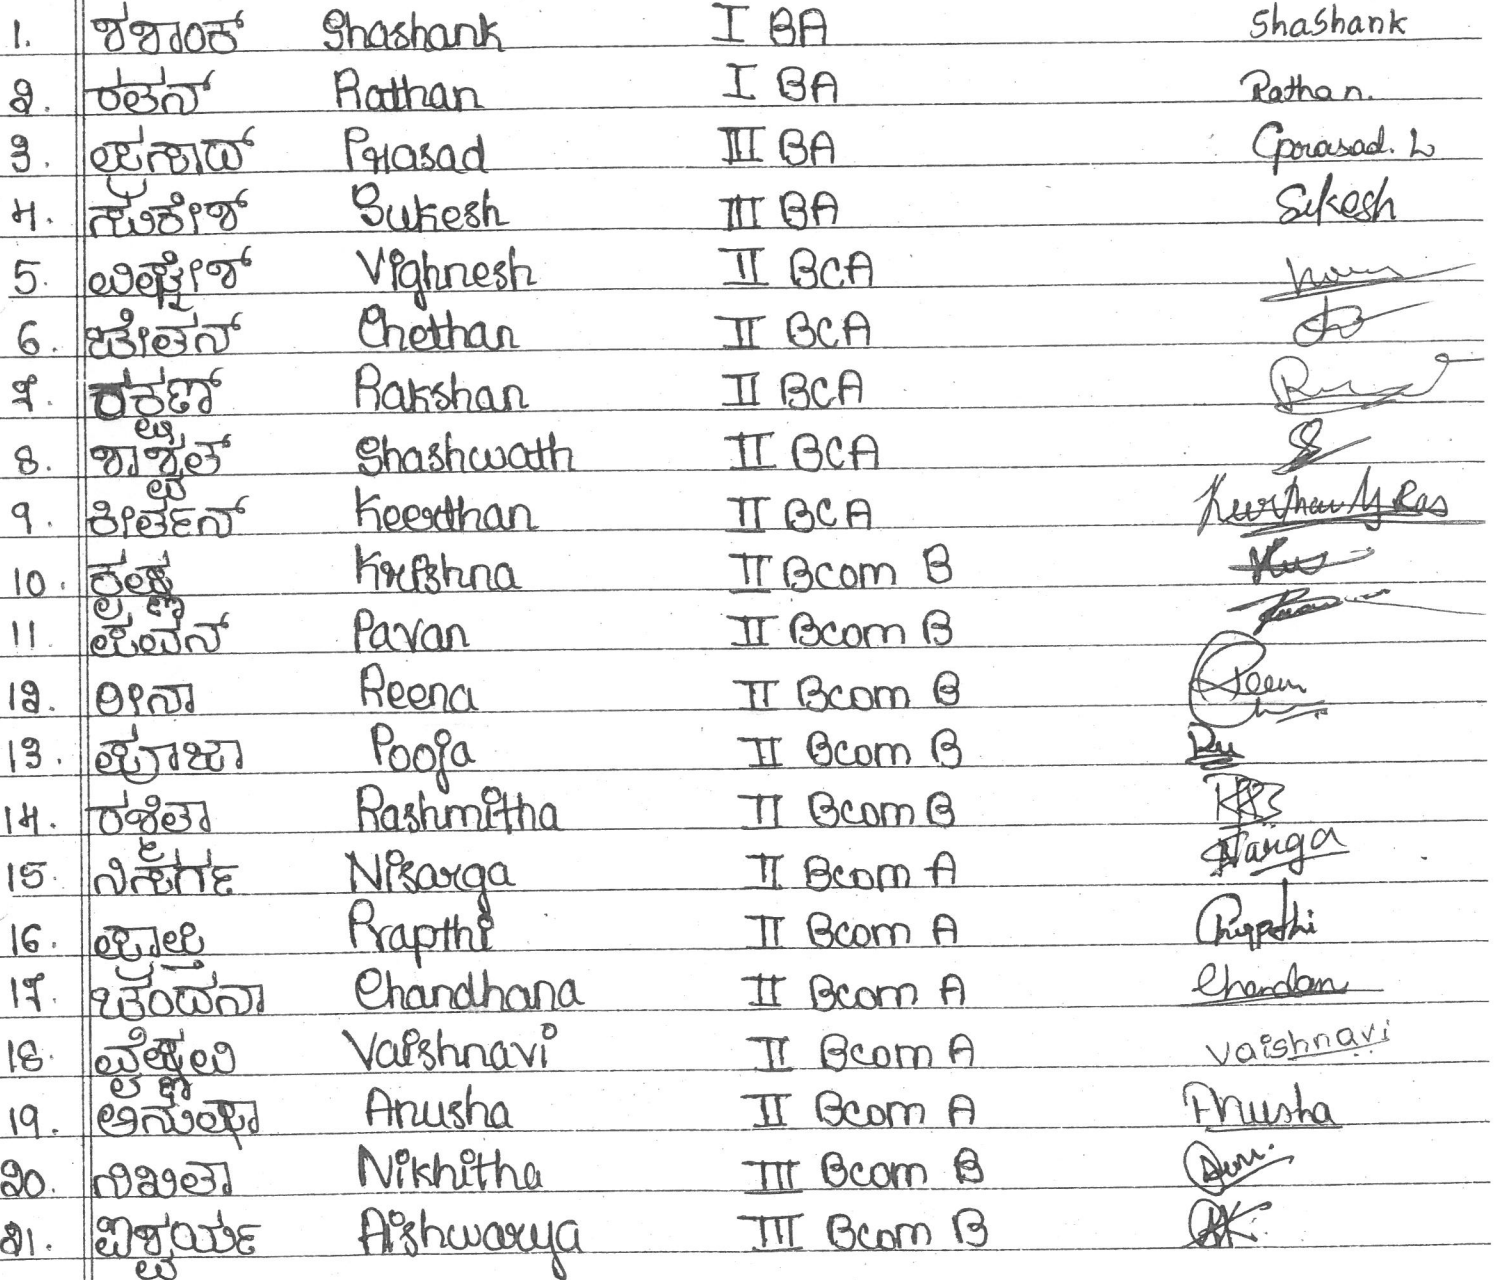 1. ಶಶಾಂಕ್ Shashank I BA Shashank
2. ರತನ್ Rathan I BA Rathan.
3. ಪ್ರಸಾದ್ Prasad III BA Prasad. L
4. ಸುಕೇಶ್ Sukesh III BA Sukesh
5. ವಿಘ್ನೇಶ್ Vighnesh II BCA
6. ಚೇತನ್ Chethan II BCA
7. ರಕ್ಷಣ್ Rakshan II BCA
8. ಶಾಶ್ವತ್ Shashwath II BCA
9. ಕೀರ್ತನ್ Keerthan II BCA
10. ಕೃಷ್ಣ Krishna II Bcom B
11 ಪವನ್ Pavan II Bcom B
12. ರೀನಾ Reena II Bcom B
13. ಪೂಜಾ Pooja II Bcom B
14. ರಶ್ಮಿತಾ Rashmitha II Bcom B
15. ನಿಸರ್ಗ Nisarga II Bcom A
16. ಪ್ರಾಪ್ತಿ Prapthi II Bcom A
17. ಚಂದನಾ Chandhana II Bcom A Chandan
18. ವೈಷ್ಣವಿ Vaishnavi II Bcom A Vaishnavi
19. ಅನುಷಾ Anusha II Bcom A Anusha
20. ನಿಖಿತಾ Nikhitha III Bcom B
21. ಐಶ್ವರ್ಯ Aishwarya III Bcom B